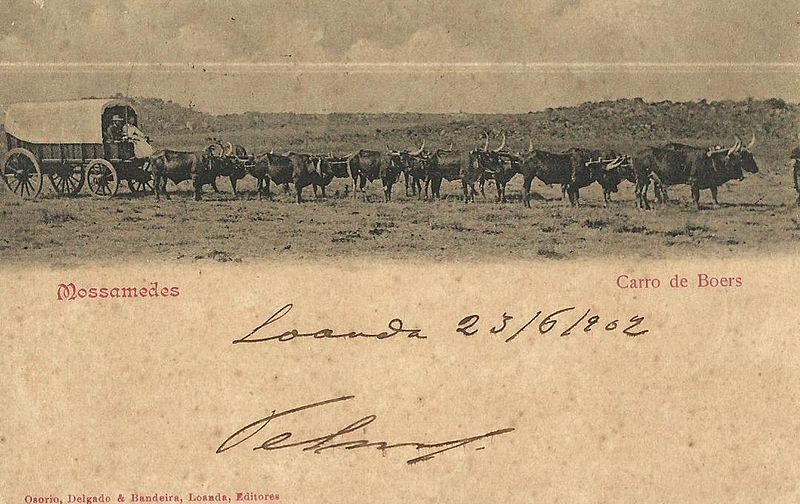 Mossamedes
Carro de Boers
Loanda 23/6/902
Osorio, Delgado & Bandeira, Loanda, Editores